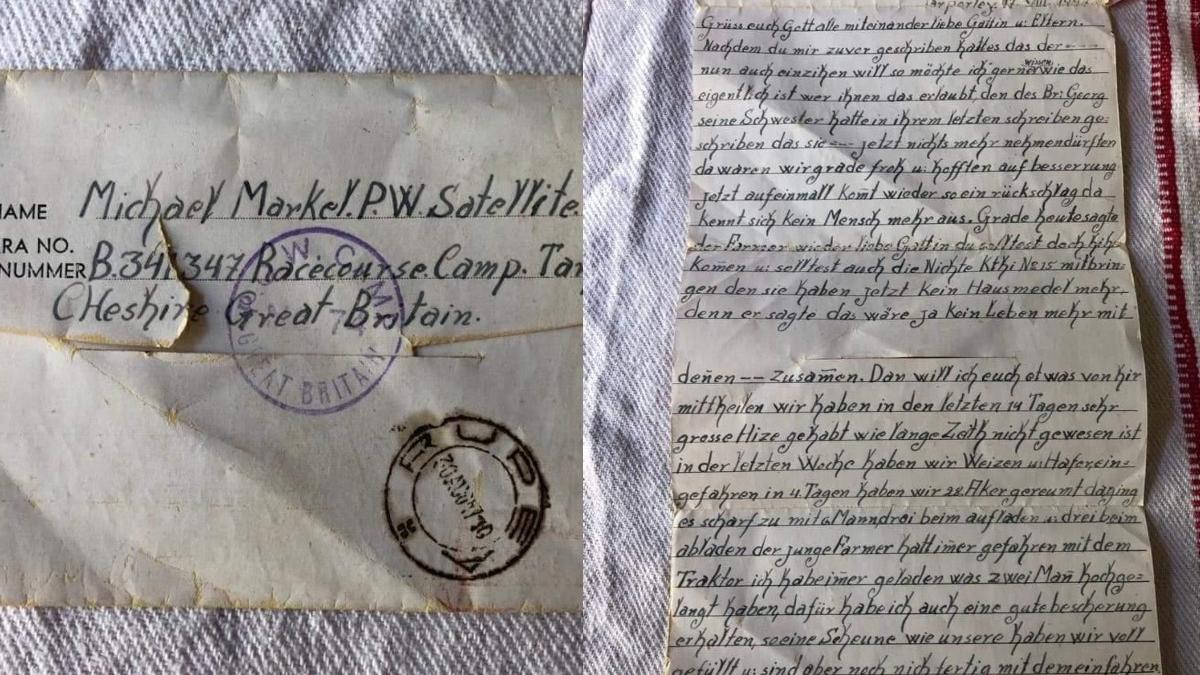 NAME Michael Markel. P.W. Satellite.
RA NO.
NUMMER B.341347 Racecourse. Camp. Tar
CHeshire Great Britain.
P.W. CAMP
GREAT BRITAIN
RUPE
Tarporley. 17. VIII. 
Grüss euch Gott alle miteinander liebe Gattin u: Eltern.
Nachdem du mir zuver geschriben hattes das der ----
nun auch einzihen will so möchte ich gerne wissen wie das
eigentlich ist wer ihnen das erlaubt, den des Br: Georg
seine Schwester hatte in ihrem letzten schreiben ge:
schriben das sie --- jetzt nichts mehr nehmen dürften
da waren wir grade froh u: hofften auf besserung
jetzt aufeinmall komt wieder so ein rückschlag da
kennt sich kein Mensch mehr aus. Grade heute sagte
der Farmer wieder liebe Gattin du solltest doch hihr
komen u: solltest auch die Nichte Kthi No 15 mitbrin:
gen den sie haben jetzt kein Hausmedel mehr,
denn er sagte das wäre ja kein Leben mehr mit
denen --- zusam̄en. Dan will ich euch etwas von hir
mittheilen wir haben in den letzten 14 Tagen sehr
grosse Hize gehabt wie lange Zeith nicht gewesen ist
in der letzten Woche haben wir Weizen u: Hafer ein=
gefahren in 4 Tagen haben wir 22. Aker gereumt da ging
es scharf zu mit 6 Mann drei beim aufladen u: drei beim
abladen der junge Farmer hatt im̄er gefahren mit dem
Traktor ich habe im̄er geladen was zwei Man̄ hochge=
langt haben, dafür habe ich auch eine gute bescherung
erhalten, so eine Scheune wie unsere haben wir voll
gefüllt u: sind aber noch nich fertig mit dem einfahren